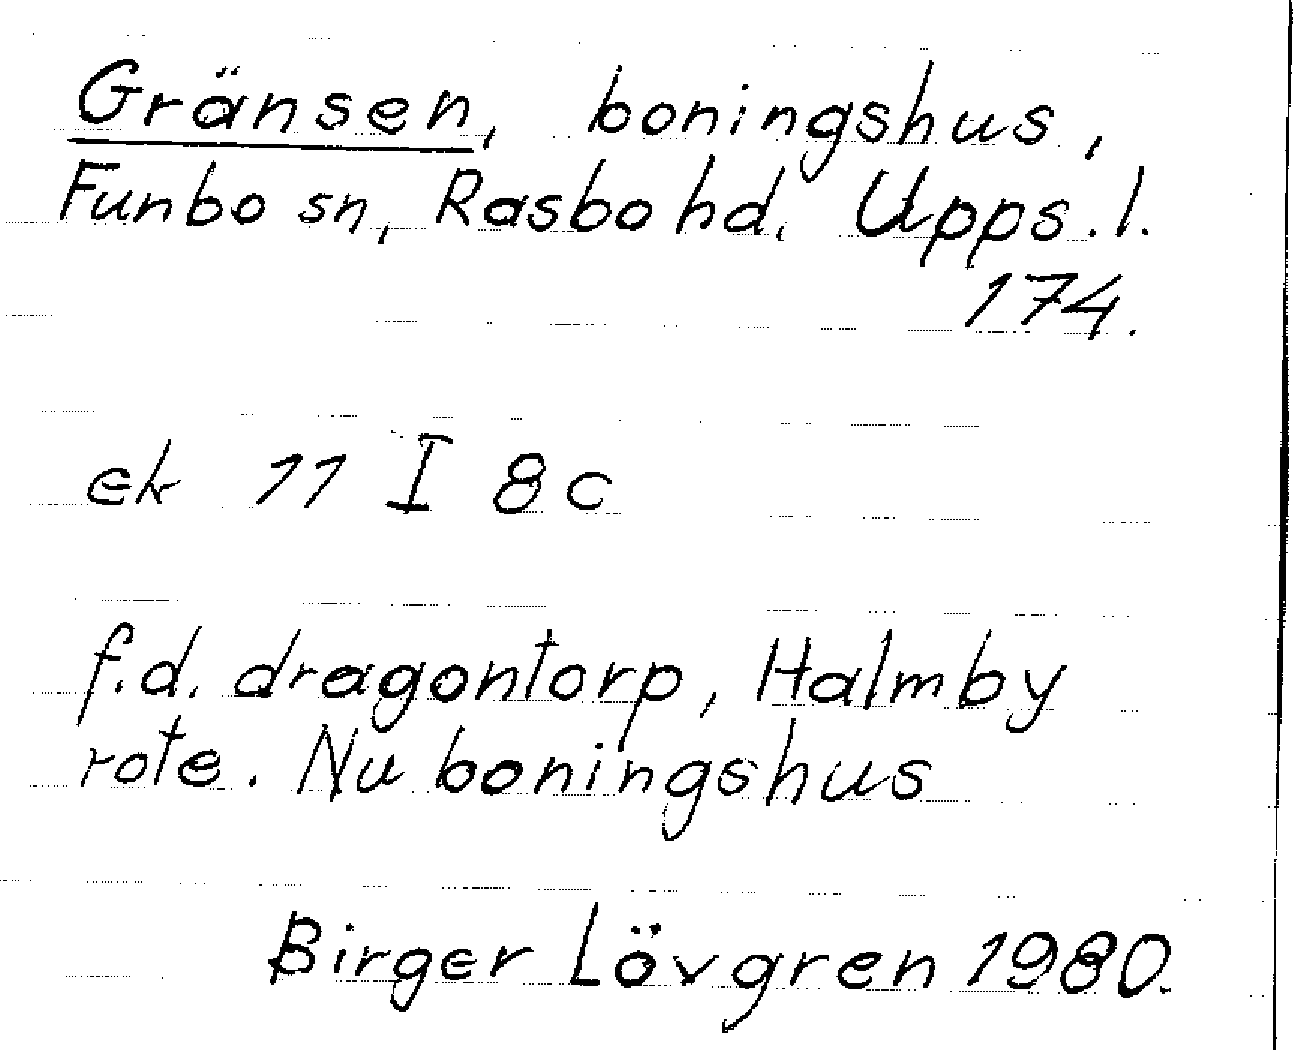 Gränsen, boningshus,
Funbo sn, Rasbo hd. Upps. l.
174.
ek 11 I 8 c
f.d. dragontorp, Halmby
rote. Nu boningshus
Birger Lövgren 1980.